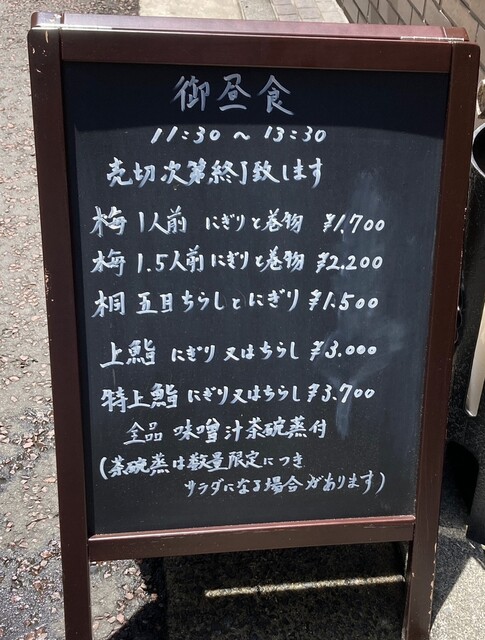 御昼食
11:30 ~ 13:30
売切次第終了致します
梅 1人前 にぎりと巻物 ¥1.700
梅 1.5人前 にぎりと巻物 ¥2.200
桐 五目ちらしとにぎり ¥1.500
上鮨 にぎり又はちらし ¥3.000
特上鮨 にぎり又はちらし ¥3.700
全品 味噌汁茶碗蒸付
(茶碗蒸は数量限定につき
サラダになる場合があります)